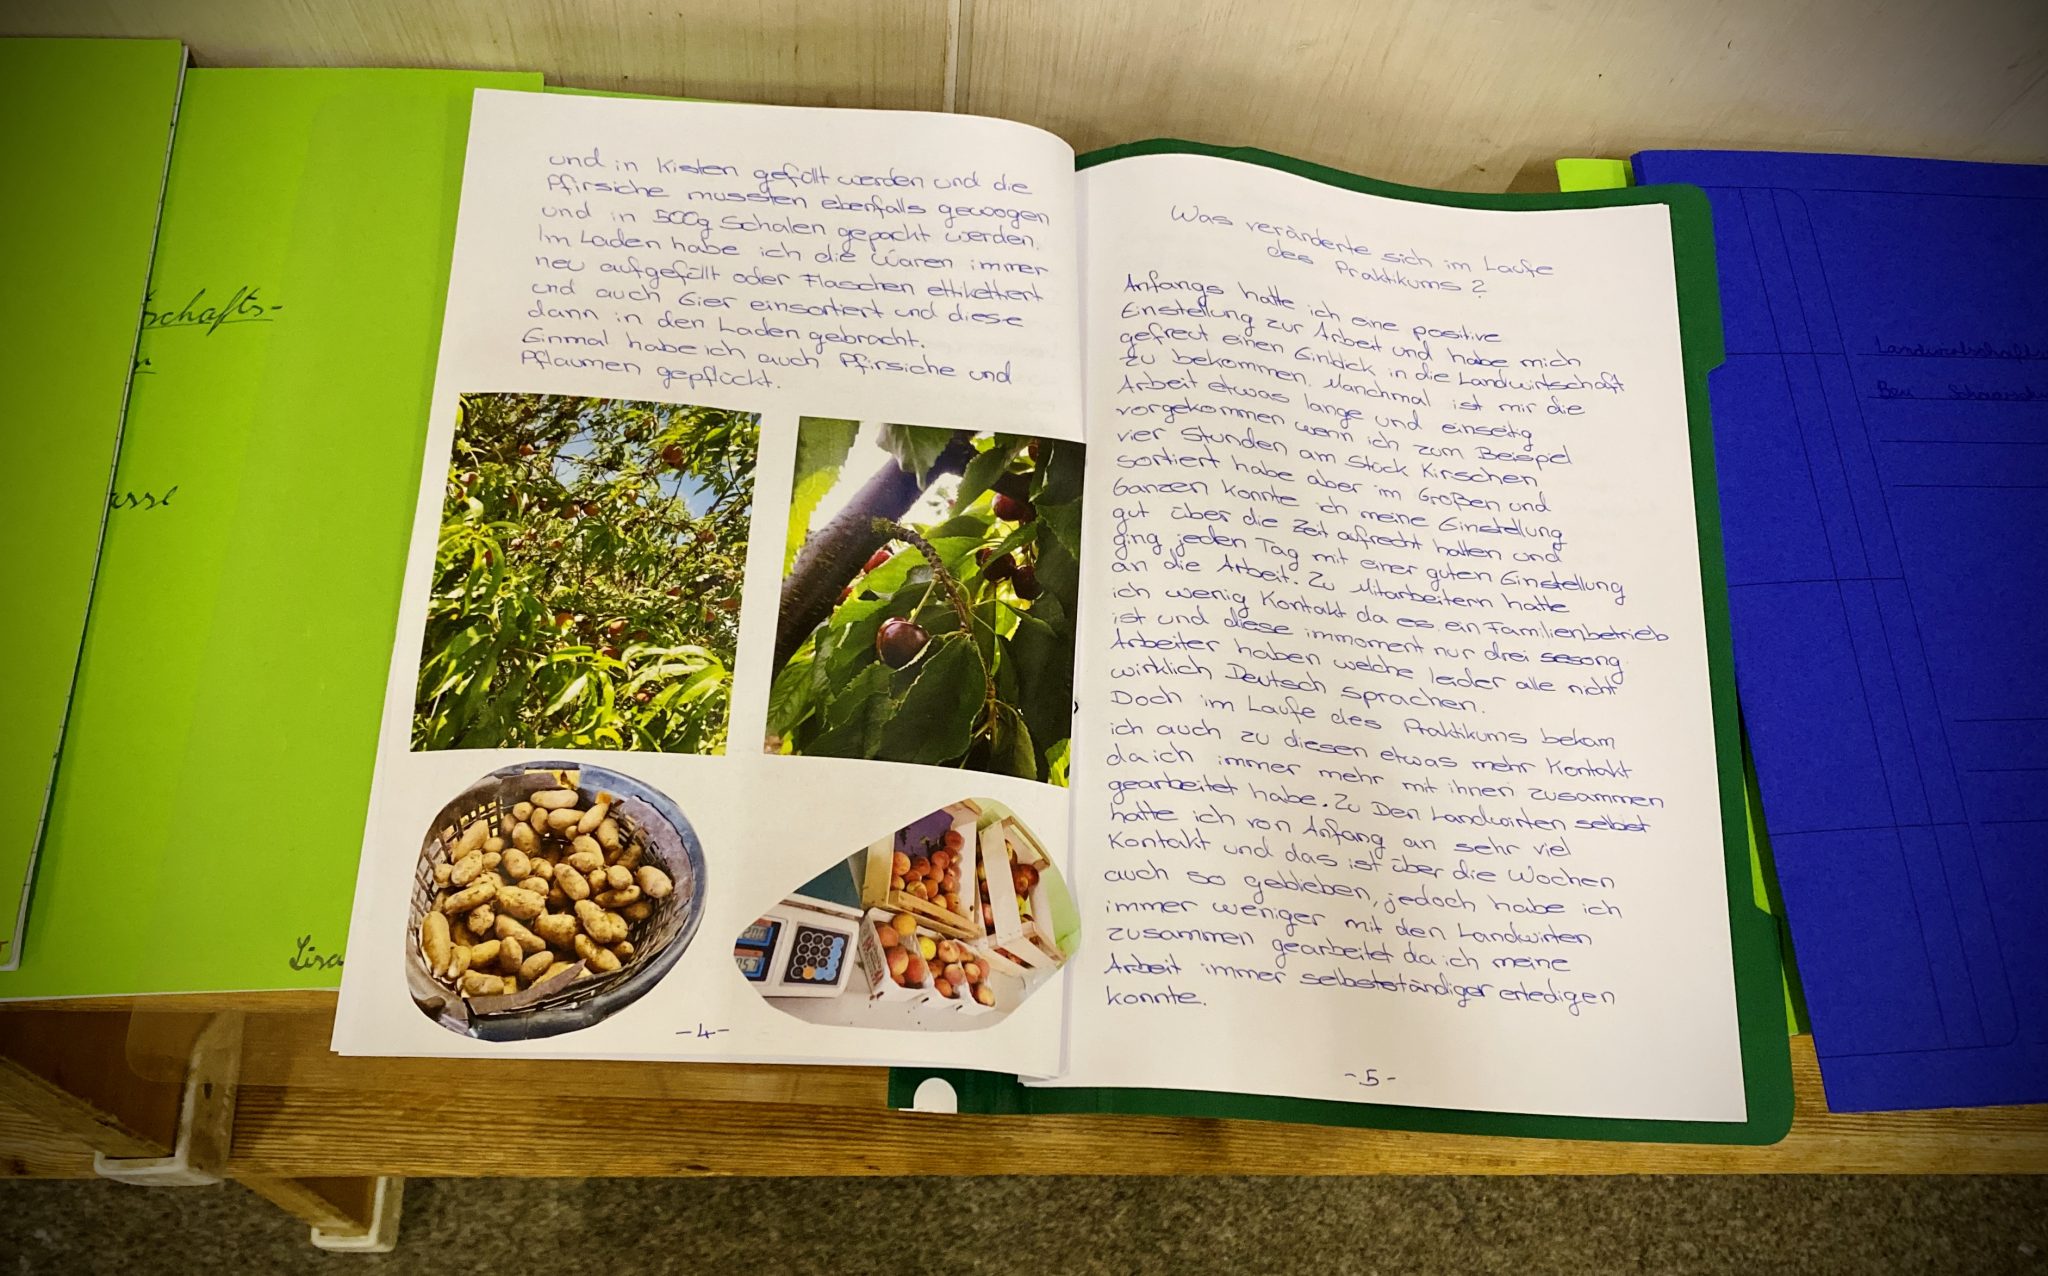 schafts-
Lisa
und in Kisten gefüllt werden und die
Pfirsiche mussten ebenfalls gewogen
und in 500g Schalen gepackt werden.
Im Laden habe ich die Waren immer
neu aufgefüllt oder Flaschen ettikettiert
und auch Eier einsortiert und diese
dann in den Laden gebracht.
Einmal habe ich auch Pfirsiche und
Pflaumen gepflückt.
-4-
Was veränderte sich im Laufe
des Praktikums?
Anfangs hatte ich eine positive
Einstellung zur Arbeit und habe mich
gefreut einen Einblick in die Landwirtschaft
zu bekommen. Manchmal ist mir die
Arbeit etwas lange und einseitig
vorgekommen wenn ich zum Beispiel
vier Stunden am Stück Kirschen
sortiert habe aber im Großen und
Ganzen konnte ich meine Einstellung
gut über die Zeit aufrecht halten und
ging jeden Tag mit einer guten Einstellung
an die Arbeit. Zu Mitarbeitern hatte
ich wenig Kontakt da es ein Familienbetrieb
ist und diese immoment nur drei sesong
Arbeiter haben welche leider alle nicht
wirklich Deutsch sprachen.
Doch im Laufe des Praktikums bekam
ich auch zu diesen etwas mehr Kontakt
da ich immer mehr mit ihnen zusammen
gearbeitet habe. Zu Den Landwirten selbst
hatte ich von Anfang an sehr viel
Kontakt und das ist über die Wochen
auch so geblieben, jedoch habe ich
immer weniger mit den Landwirten
zusammen gearbeitet da ich meine
Arbeit immer selbstständiger erledigen
konnte.
-5-